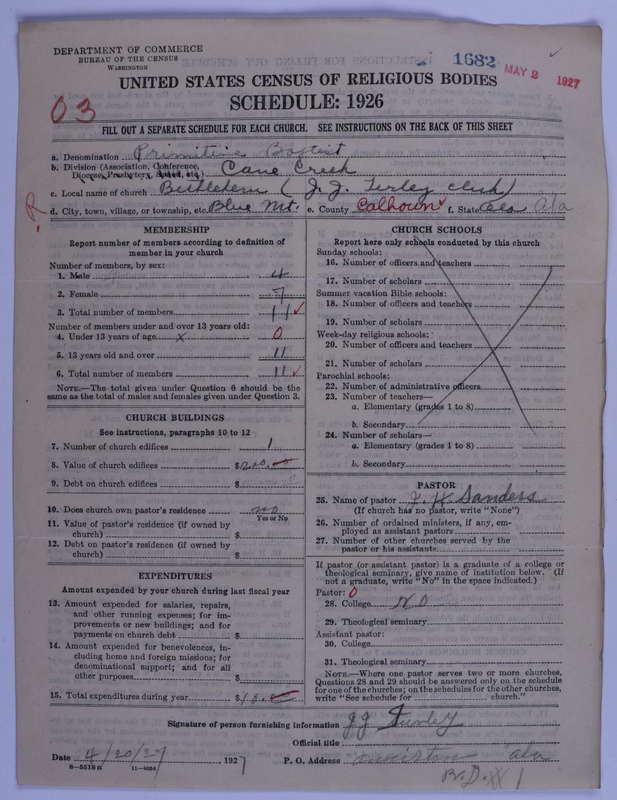 DEPARTMENT OF COMMERCE
BUREAU OF THE CENSUS
WASHINGTON
1682
MAY 2 1927
UNITED STATES CENSUS OF RELIGIOUS BODIES
SCHEDULE: 1926
03
FILL OUT A SEPARATE SCHEDULE FOR EACH CHURCH. SEE INSTRUCTIONS ON THE BACK OF THIS SHEET
a. Denomination Primitive Baptist
b. Division (Association, Conference, Diocese, Presbytery, Synod, etc.) Cane Creek
c. Local name of church Bethlehem (J. J.
R
d. City, town, village, or township, etc. Blue Mt. e. County Calhoun f. State Ala Ala
MEMBERSHIP
Report number of members according to definition of member in your church
Number of members, by sex:
1. Male 4
2. Female 7
3. Total number of members 11
Number of members under and over 13 years old:
4. Under 13 years of age x 0
5. 13 years old and over 11
6. Total number of members 11
NOTE.—The total given under Question 6 should be the same as the total of males and females given under Question 3.
CHURCH BUILDINGS
See instructions, paragraphs 10 to 12
7. Number of church edifices 1
8. Value of church edifices $200.
9. Debt on church edifices $
10. Does church own pastor's residence no
Yes or No
11. Value of pastor's residence (if owned by church) $
12. Debt on pastor's residence (if owned by church) $
EXPENDITURES
Amount expended by your church during last fiscal year
13. Amount expended for salaries, repairs, and other running expenses; for improvements or new buildings; and for payments on church debt $
14. Amount expended for benevolences, including home and foreign missions; for denominational support; and for all other purposes $
15. Total expenditures during year $
CHURCH SCHOOLS
Report here only schools conducted by this church
Sunday schools:
16. Number of officers and teachers
17. Number of scholars
Summer vacation Bible schools:
18. Number of officers and teachers
19. Number of scholars
Week-day religious schools:
20. Number of officers and teachers
21. Number of scholars
Parochial schools:
22. Number of administrative officers
23. Number of teachers—
a. Elementary (grades 1 to 8)
b. Secondary
24. Number of scholars—
a. Elementary (grades 1 to 8)
b. Secondary
PASTOR
25. Name of pastor H. Sanders
(If church has no pastor, write "None")
26. Number of ordained ministers, if any, employed as assistant pastors
27. Number of other churches served by the pastor or his assistants
If pastor (or assistant pastor) is a graduate of a college or theological seminary, give name of institution below. (If not a graduate, write "No" in the space indicated.)
Pastor: 0
28. College NO
29. Theological seminary
Assistant pastor:
30. College
31. Theological seminary
NOTE.—Where one pastor serves two or more churches, Questions 28 and 29 should be answered only on the schedule for one of the churches; on the schedules for the other churches, write "See schedule for church."
Signature of person furnishing information J. J.
Official title
Date 4/20/27, 1927 P. O. Address Anniston Ala
8—5518 a 11—9064
R. D. # 1